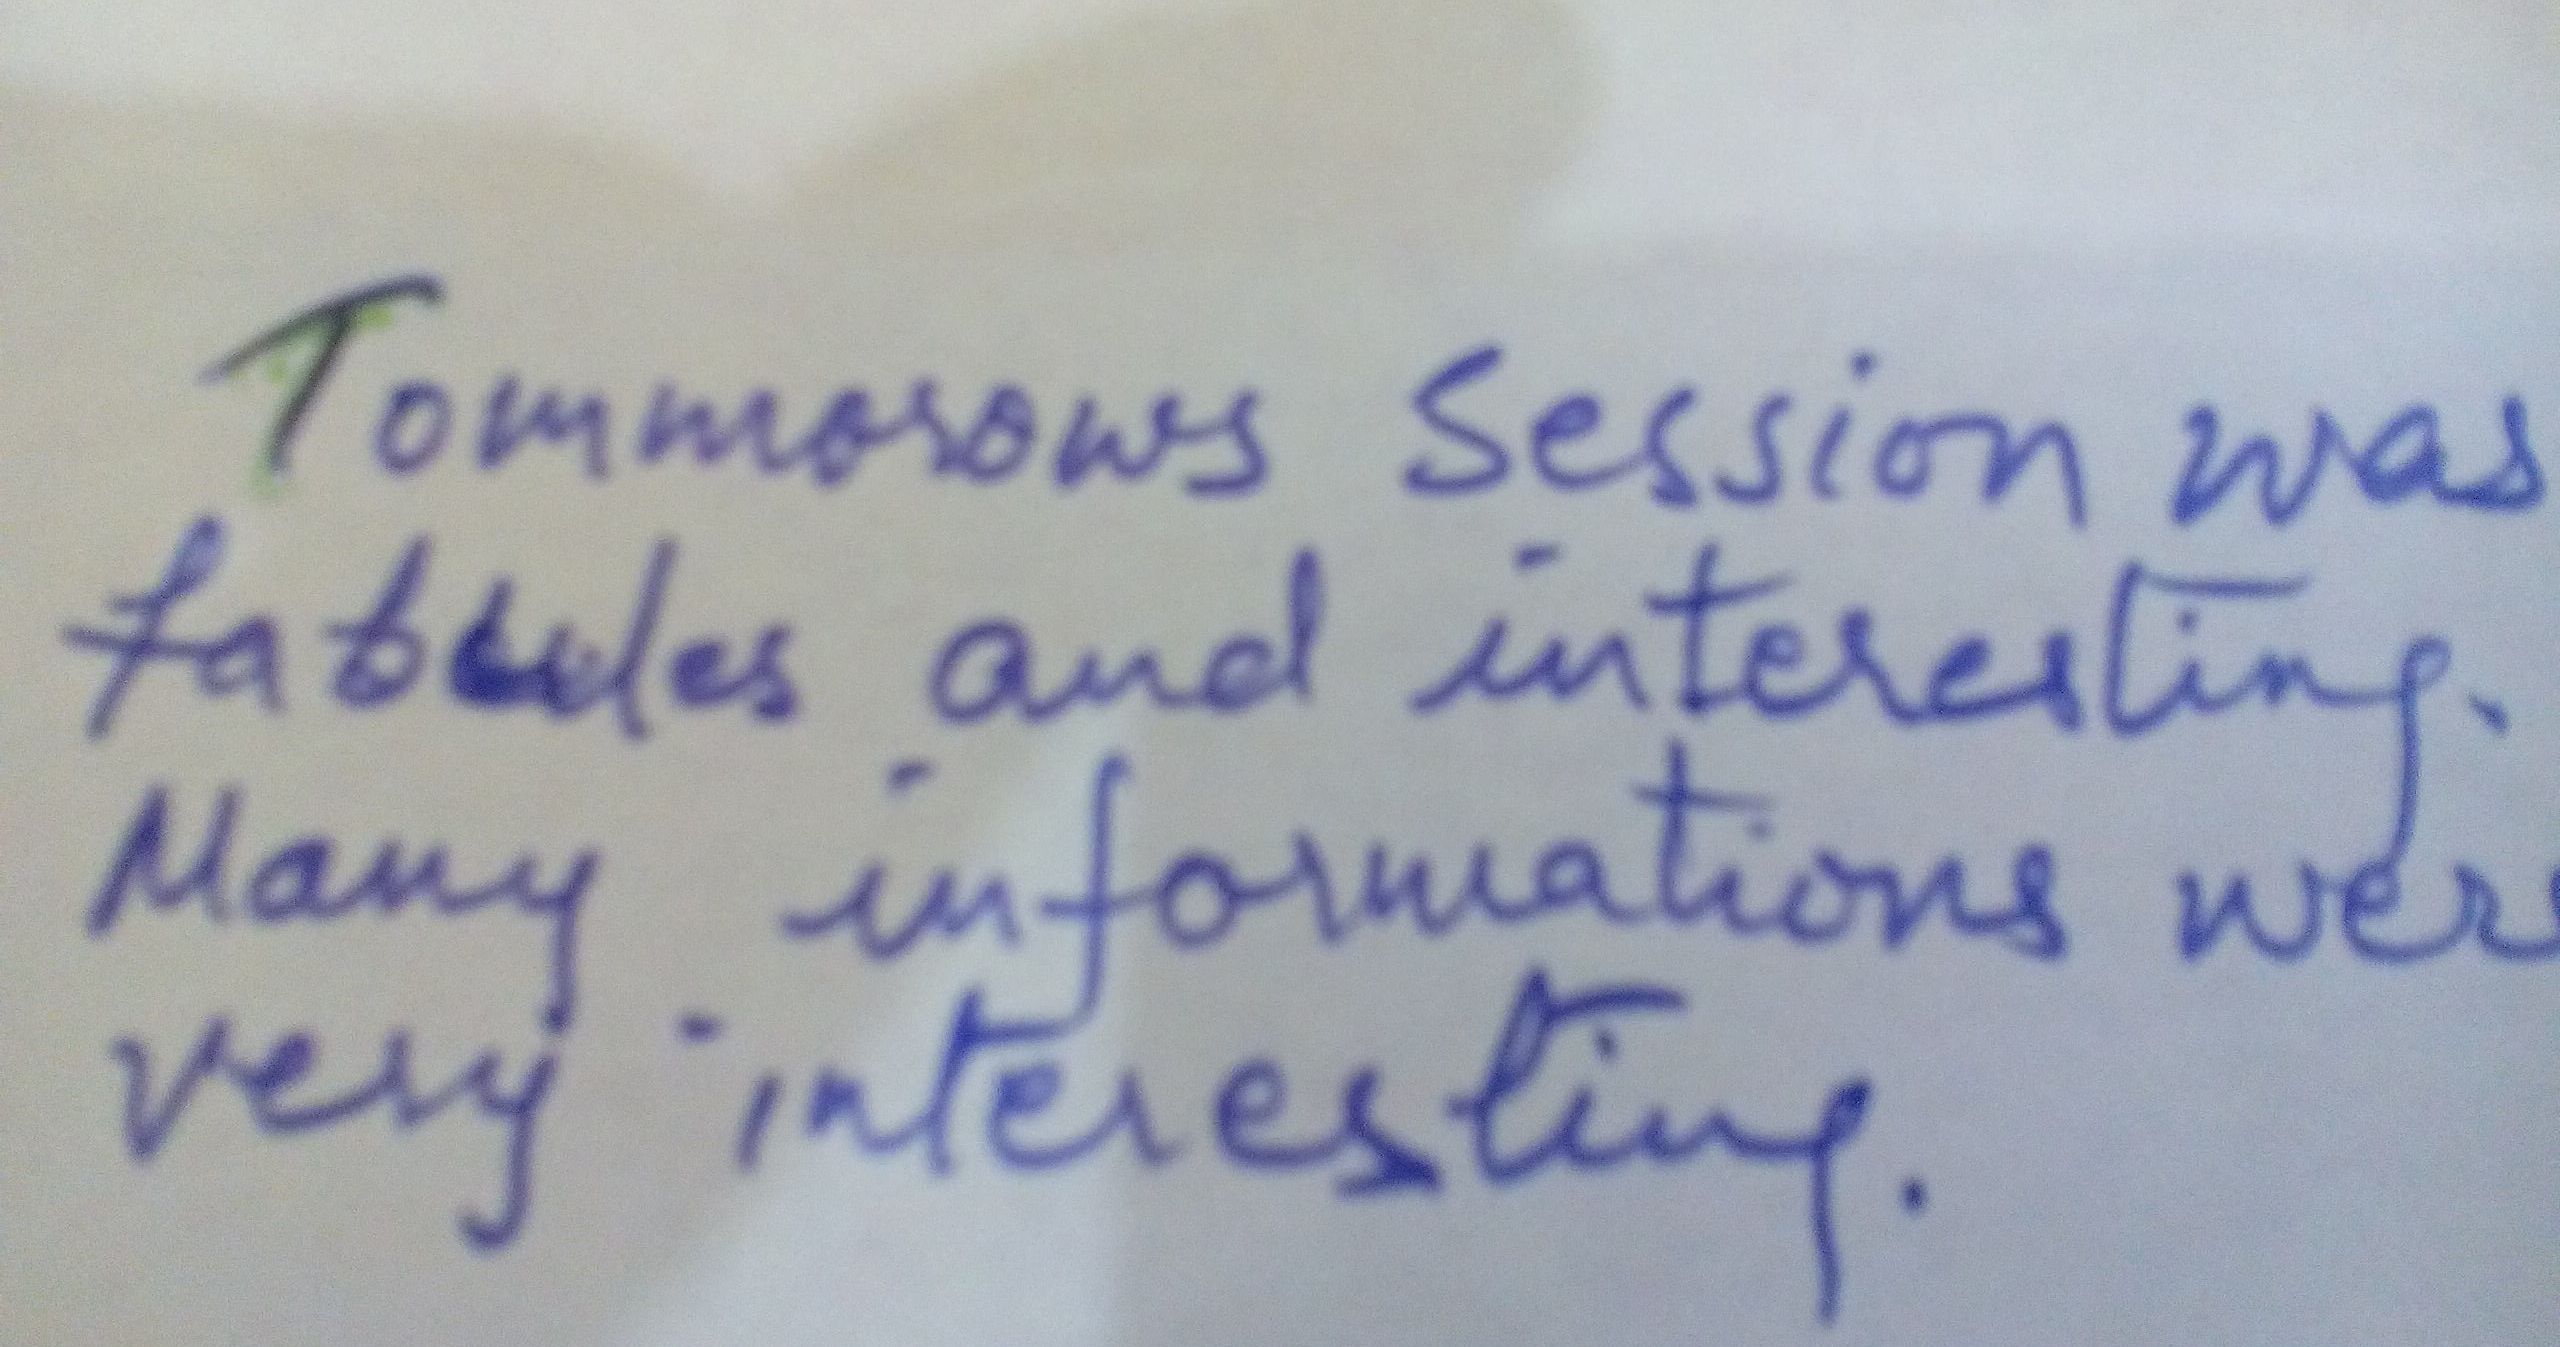 Tommorows Session was
fabules and interesting.
Many informations were
very interesting.